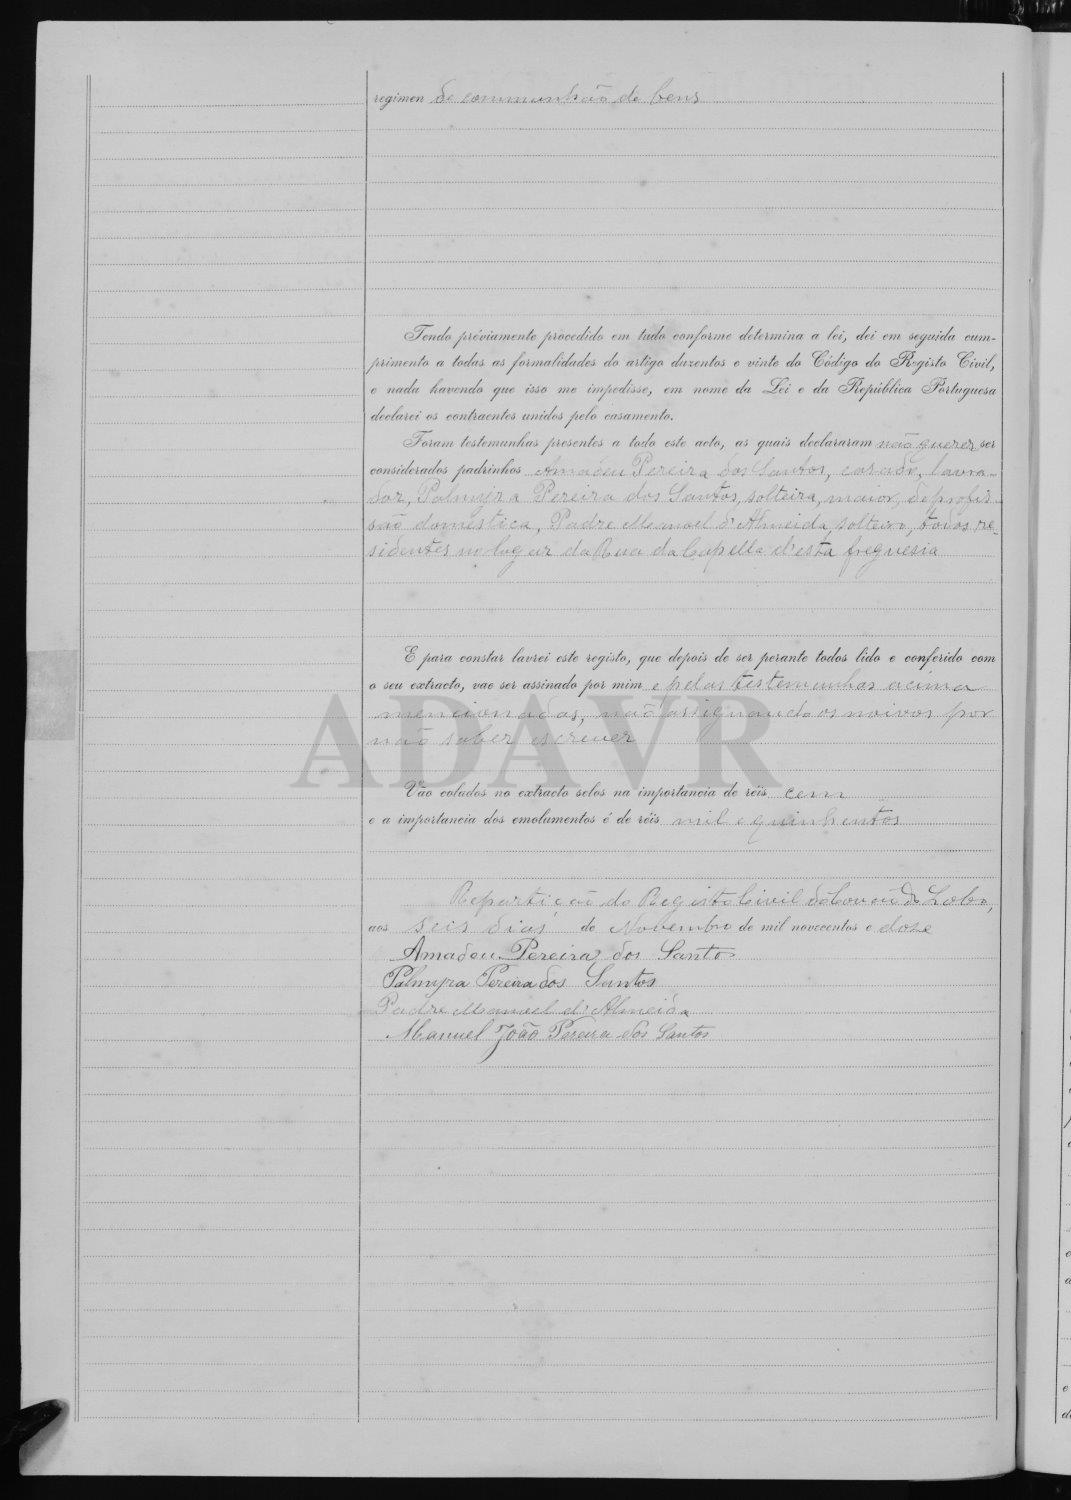 regimen de communhão de bens
Tendo préviamente procedido em tudo conforme determina a lei, dei em seguida cum-
primento a todas as formalidades do artigo duzentos e vinte do Código do Registo Civil,
e nada havendo que isso me impedisse, em nome da Lei e da República Portuguesa
declarei os contraentes unidos pelo casamento.
Foram testemunhas presentes a todo este acto, as quais declararam não querer ser
considerados padrinhos Amadeu Pereira dos Santos, casado, lavra-
dor, Palmyra Pereira dos Santos, solteira, maior, de profis-
são domestica, Padre Manoel d'Almeida, solteiro, todos re-
sidentes no logar da Rua da Capella d'esta freguesia
E para constar lavrei este registo, que depois de ser perante todos lido e conferido com
o seu extracto, vae ser assinado por mim e pelas testemunhas acima
mencionadas, não assignando os noivos por
não saber escrever
ADAVR
Vão colados no extracto selos na importancia de réis cem
e a importancia dos emolumentos é de réis mil e quinhentos
Repartição do Registo Civil do Couto de
aos seis dias de Novembro de mil novecentos e doze
Amadeu Pereira dos Santos
Palmyra Pereira dos Santos
Padre Manoel d'Almeida
Manuel João Pereira dos Santos